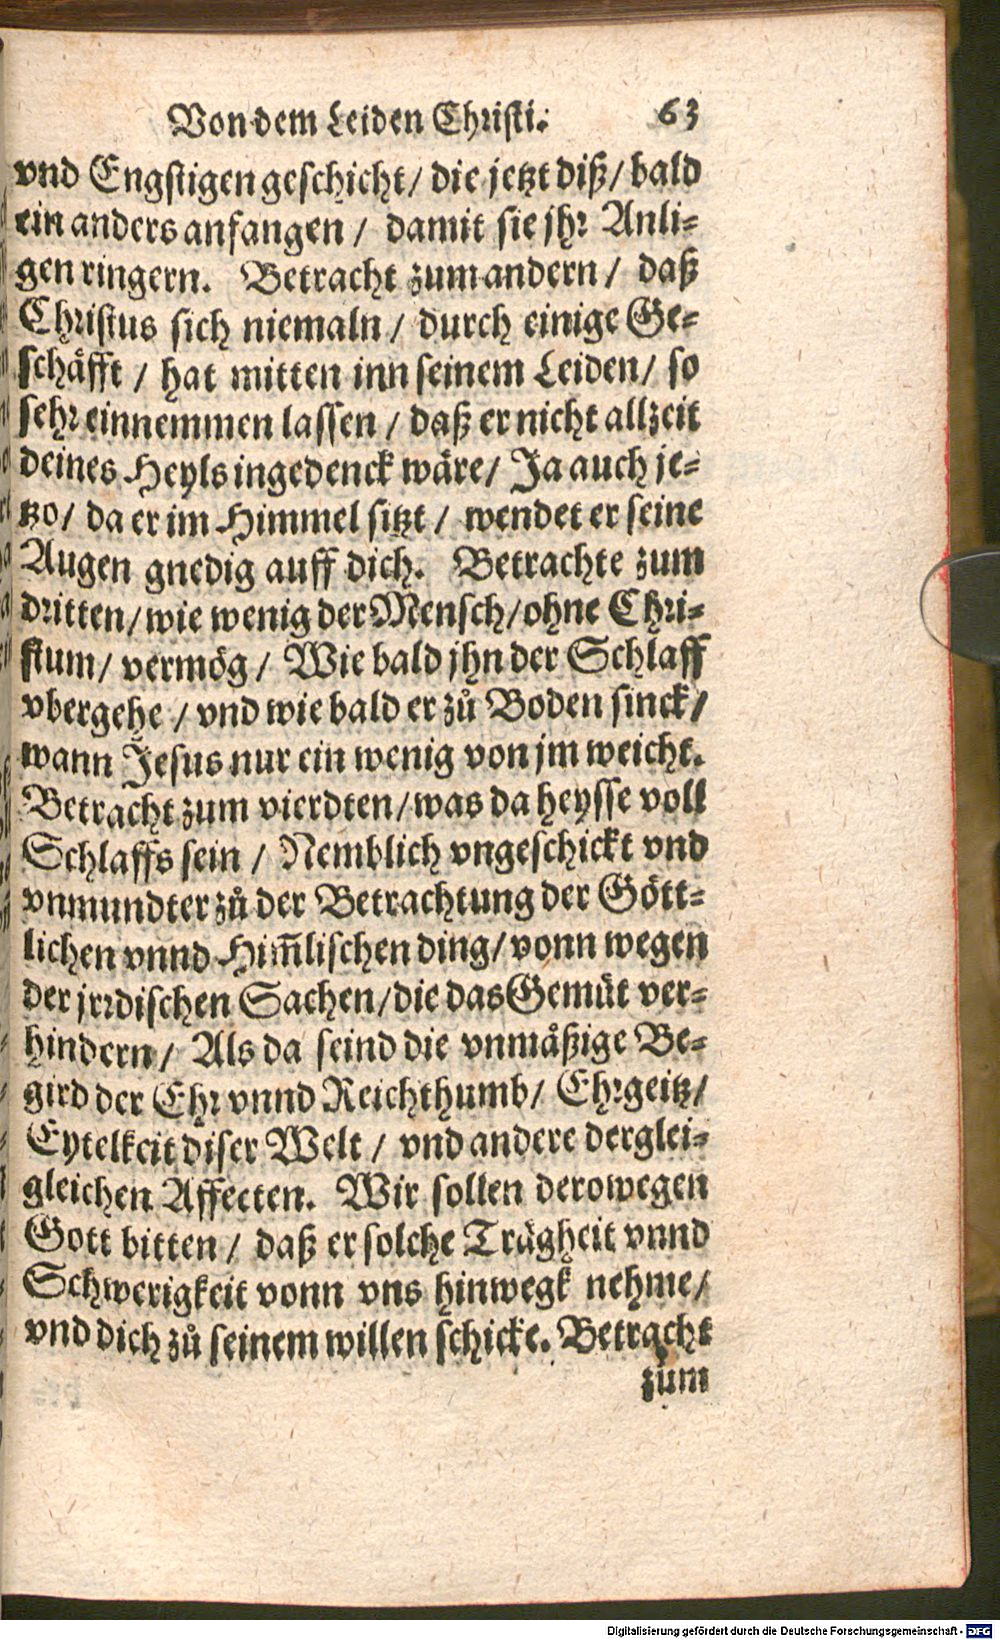 Von dem Leiden Christi. 63
vnd Engstigen geschicht / die jetzt diß / bald
ein anders anfangen / damit sie jhr Anli⸗
gen ringern. Betracht zum andern / daß
Christus sich niemaln / durch einige Ge⸗
schäfft / hat mitten inn seinem Leiden / so
sehr einnemmen lassen / daß er nicht allzeit
deines Heyls ingedenck wäre / Ja auch je⸗
tzo / da er im Himmel sitzt / wendet er seine
Augen gnedig auff dich. Betrachte zum
dritten / wie wenig der Mensch / ohne Chri⸗
stum / vermög / Wie bald jhn der Schlaff
vbergehe / vnd wie bald er zů Boden sinck /
wann Jesus nur ein wenig von jm weicht.
Betracht zum vierdten / was da heysse voll
Schlaffs sein / Nemblich vngeschickt vnd
vnmundter zů der Betrachtung der Gött⸗
lichen vnnd Him̃lischen ding / vonn wegen
der jrrdischen Sachen / die das Gemüt ver⸗
hindern / Als da seind die vnmäßige Be⸗
gird der Ehr vnnd Reichthumb / Ehrgeitz /
Eytelkeit diser Welt / vnd andere derglei⸗
gleichen Affecten. Wir sollen derowegen
Gott bitten / daß er solche Trägheit vnnd
Schwerigkeit vonn vns hinwegk nehme /
vnd dich zů seinem willen schicke. Betracht
zum
Digitalisierung gefördert durch die Deutsche Forschungsgemeinschaft - DFG